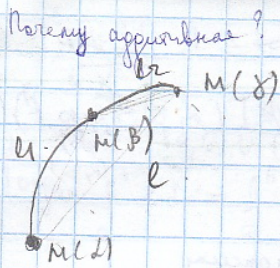 Почему аддитивная?
l2
M(γ)
l1
M(β)
l
M(α)